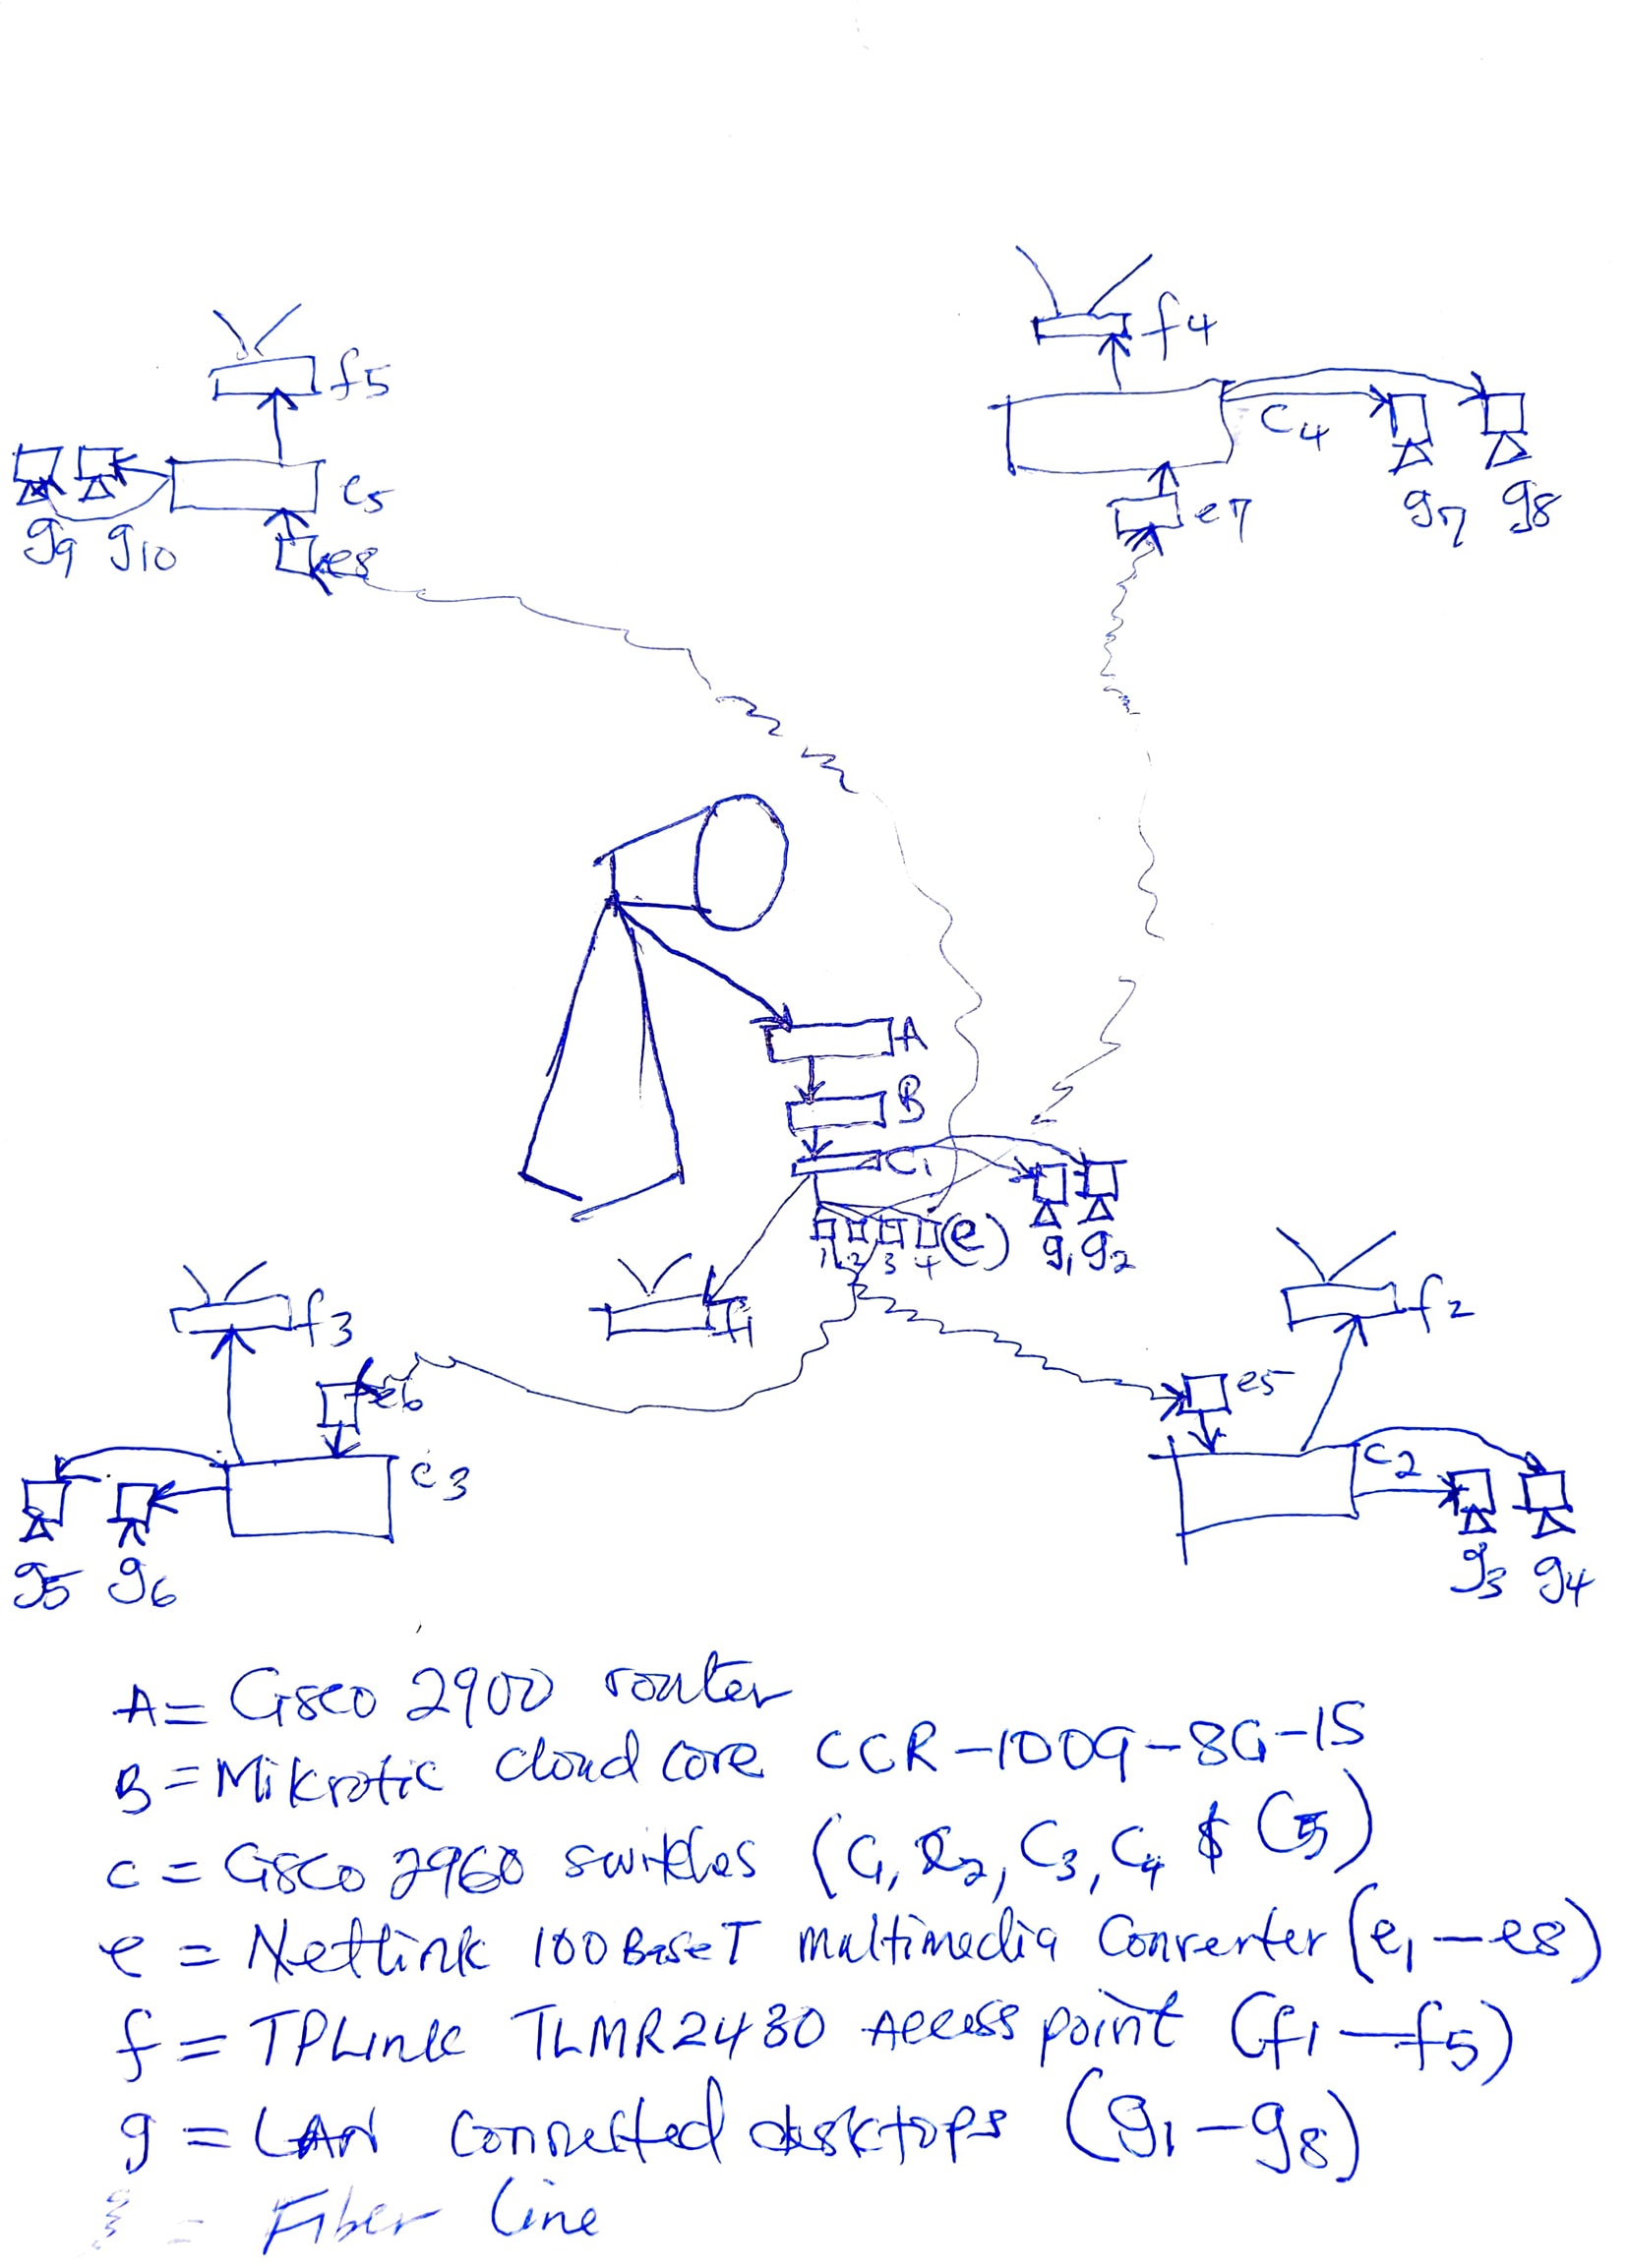 f4
f5
C4
c5
e7
g7 g8
g9 g10
e8
A
B
C1
(e)
1 2 3 4
g1 g2
f3
f1
f2
e6
e5
c3
C2
g5 g6
g3 g4
A = Cisco 2900 router
B = Mikrotic cloud core CCR-1009-8G-1S
C = Cisco 2960 switches (C1, C2, C3, C4 & C5)
e = Netlink 100BaseT multimedia Converter (e1 — e8)
f = TPLink TLMR2430 Access point (f1 — f5)
g = LAN connected desktops (g1 - g8)
= Fiber Line